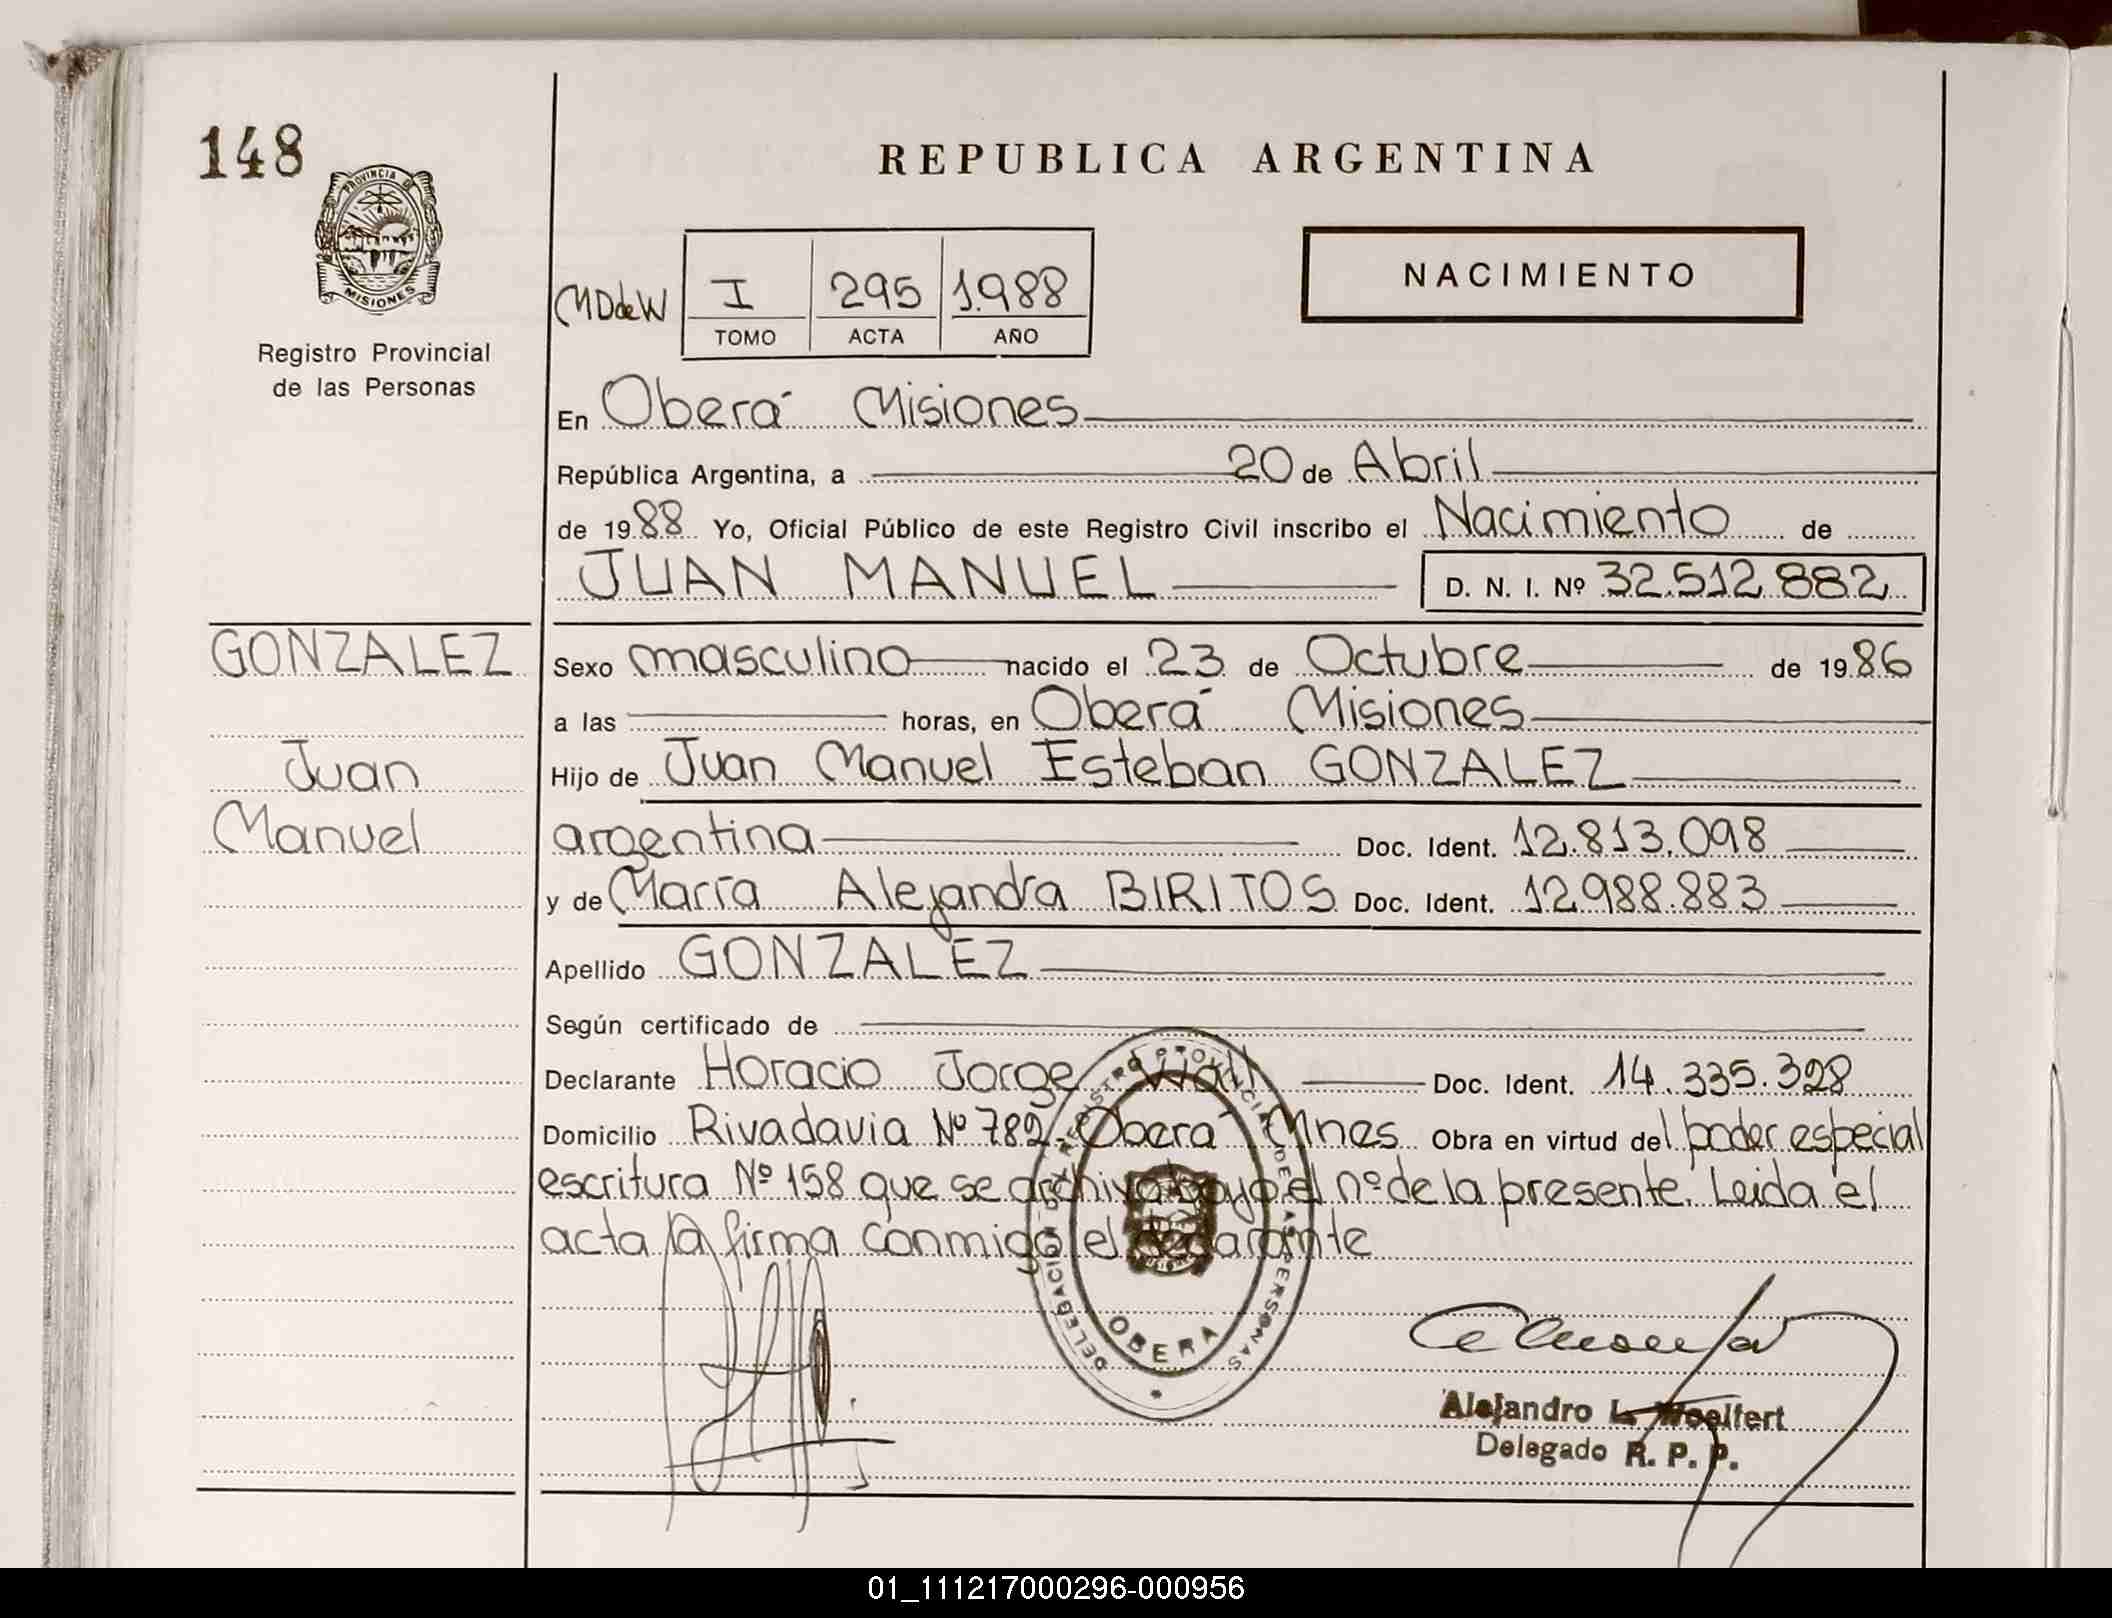 148
PROVINCIA DE
MISIONES
Registro Provincial
de las Personas
REPUBLICA ARGENTINA
MDdeW
I 295 1.988
TOMO ACTA AÑO
NACIMIENTO
En Oberá Misiones
República Argentina, a 20 de Abril
de 1988 Yo, Oficial Público de este Registro Civil inscribo el Nacimiento de
JUAN MANUEL D. N. I. Nº 32.512.882
GONZALEZ
Juan
Manuel
Sexo masculino nacido el 23 de Octubre de 1986
a las horas, en Oberá Misiones
Hijo de Juan Manuel Esteban GONZALEZ
argentina Doc. Ident. 12.813.098
y de María Alejandra BIRITOS Doc. Ident. 12.988.883
Apellido GONZALEZ
Según certificado de
Declarante Horacio Jorge Doc. Ident. 14.335.328
Domicilio Rivadavia Nº 782 Oberá Mnes Obra en virtud del poder especial
escritura Nº 158 que se archiva bajo el nº de la presente. Leida el
acta la firma conmigo el declarante
DELEGACION DEL REGISTRO PROVINCIAL DE LAS PERSONAS
OBERA
Alejandro L. Woelfert
Delegado R. P. P.
01_111217000296-000956